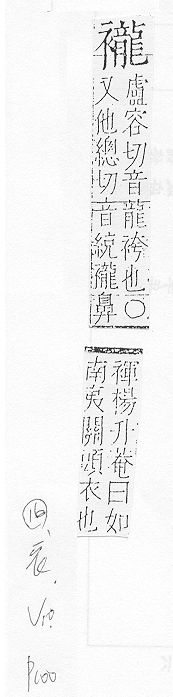 襱
盧容切音龍袴也〇
又他總切音統襱鼻
褌楊升菴曰如
南夷關頭衣也
⑯、衣.
P100